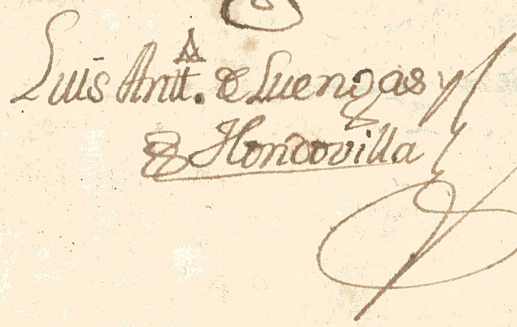 Luis Antt. de Luengas y
Hondovilla